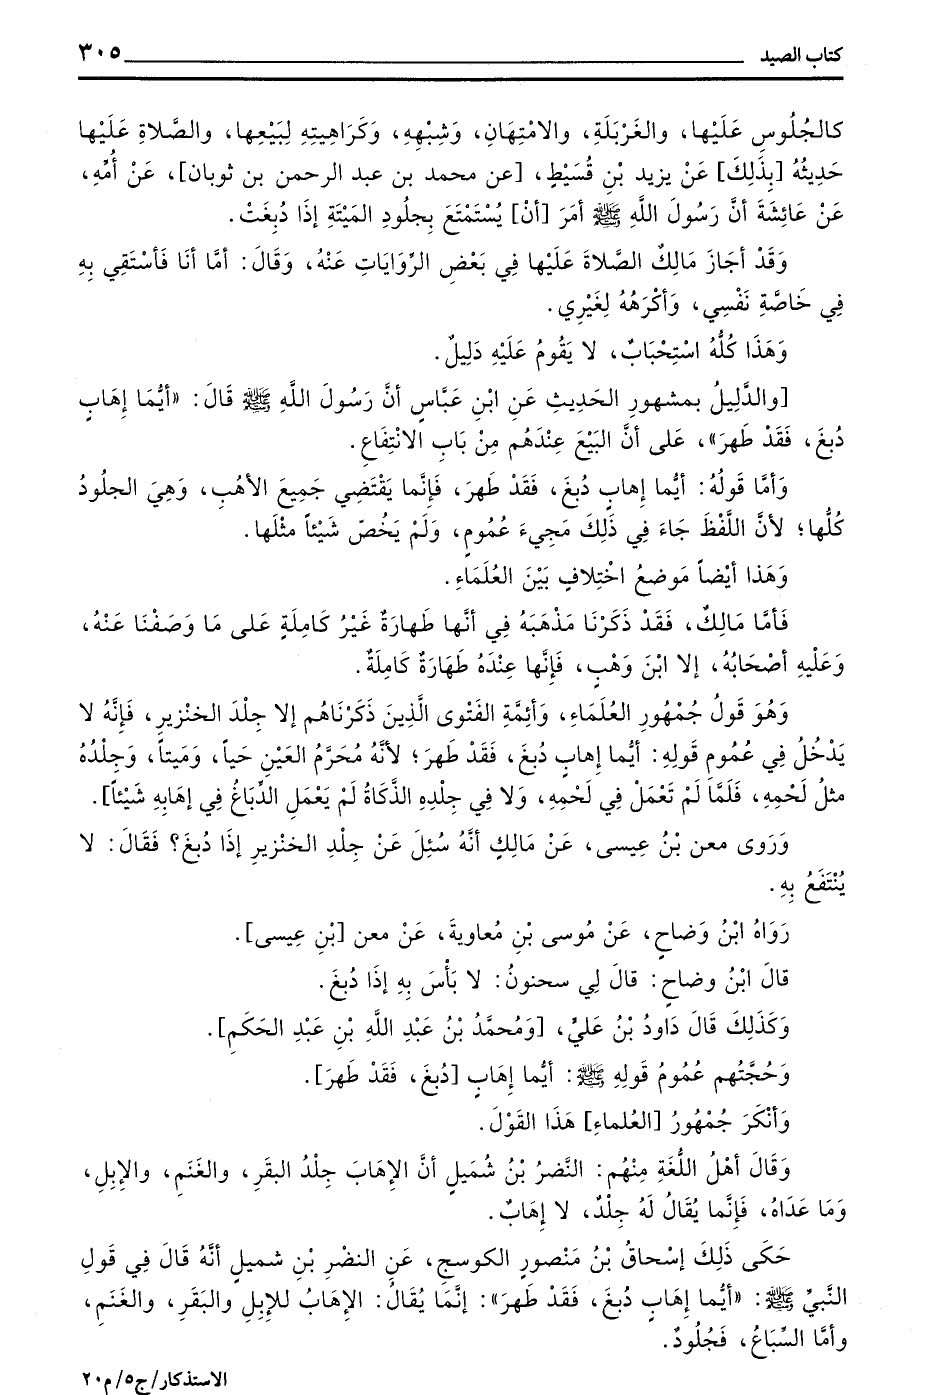 كتاب الصيد ٣٠٥
كالجُلُوسِ عَلَيْها، والغَرْبَلَةِ، والامْتِهَانِ، وَشِبْهِهِ، وَكَرَاهِيتِهِ لِبَيْعِها، والصَّلاةِ عَلَيْها
حَدِيثُهُ [بِذَلِكَ] عَنْ يزيد بْنِ قُسَيْطٍ، [عن محمد بن عبد الرحمن بن ثوبان]، عَنْ أُمِّهِ،
عَنْ عَائِشَةَ أنَّ رَسُولَ اللَّهِ ﷺ أمَرَ [أنْ] يُسْتَمْتَعَ بِجلُودِ المَيْتَةِ إذَا دُبِغَتْ.
وَقَدْ أجَازَ مَالِكٌ الصَّلاةَ عَلَيْها فِي بَعْضِ الرِّوَايَاتِ عَنْهُ، وَقَالَ: أمَّا أنَا فَأسْتَقِي بِهِ
فِي خَاصَّةِ نَفْسِي، وَأكْرَهُهُ لِغَيْرِي.
وَهَذَا كُلُّهُ اسْتِحْبَابٌ، لا يَقُومُ عَلَيْهِ دَلِيلٌ.
[والدَّلِيلُ بمشهورِ الحَدِيثِ عَنِ ابْنِ عَبَّاسٍ أنَّ رَسُولَ اللَّهِ ﷺ قَالَ: «أيُّمَا إهَابٍ
دُبغَ، فَقَدْ طَهرَ»، عَلى أنَّ البَيْعَ عِنْدَهُم مِنْ بَابِ الانْتِفَاعِ.
وَأمَّا قَولُهُ: أيُّما إهابٍ دُبغَ، فَقَدْ طَهرَ، فَإنَّما يَقْتَضِي جَمِيعَ الأهُبِ، وَهِيَ الجلُودُ
كُلُّها؛ لأنَّ اللَّفْظَ جَاءَ فِي ذَلِكَ مَجِيءَ عُمُومٍ، وَلَمْ يَخُصّ شَيْئاً مثْلَها.
وَهَذا أيْضاً مَوضعُ اخْتِلافٍ بَيْنَ العُلَمَاءِ.
فَأمَّا مَالِكٌ، فَقَدْ ذَكَرْنَا مَذْهَبَهُ فِي أنَّها طَهارَةٌ غَيْرُ كَامِلَةٍ عَلى مَا وَصَفْنَا عَنْهُ،
وَعَلَيْهِ أصْحَابُهُ، إلا ابْنَ وَهْبٍ، فَإنَّها عِنْدَهُ طَهَارَةٌ كَامِلَةٌ.
وَهُوَ قَولُ جُمْهُورِ العُلَمَاءِ، وَأئِمَّةِ الفَتْوى الَّذِينَ ذَكَرْنَاهُم إلا جِلْدَ الخنْزيرِ، فَإنَّهُ لا
يَدْخُلُ فِي عُمُومِ قَولِهِ: أيُّما إهابٍ دُبغَ، فَقَدْ طَهرَ؛ لأنَّهُ مُحَرَّمُ العَيْنِ حَياً، وَمَيتاً، وَجِلْدُهُ
مثلُ لَحْمِهِ، فَلَمَّا لَمْ تَعْمَل فِي لَحْمِهِ، وَلا فِي جِلْدِهِ الذَّكَاةُ لَمْ يَعْمَلِ الدِّبَاغُ فِي إهَابِهِ شَيْئاً].
وَرَوى معن بْنُ عِيسى، عَنْ مَالِكٍ أنَّهُ سُئِلَ عَنْ جِلْدِ الخنْزيرِ إذَا دُبغَ؟ فَقَالَ: لا
يُنْتَفَعُ بِهِ.
رَوَاهُ ابْنُ وَضاحٍ، عَنْ مُوسى بْنِ مُعاويةَ، عَنْ معن [بْنِ عِيسى].
قالَ ابْنُ وضاحٍ: قالَ لِي سحنونُ: لا بَأْسَ بِهِ إذَا دُبغَ.
وَكَذَلِكَ قَالَ دَاودُ بْنُ عَليٍّ، [وَمُحمَّدُ بْنُ عَبْدِ اللَّهِ بْنِ عَبْدِ الحَكَمِ].
وَحُجَّتُهم عُمُومُ قَولِهِ ﷺ: أيُّما إهَابٍ [دُبغَ، فَقَدْ طَهرَ].
وَأنْكَرَ جُمْهُورُ [العُلماءِ] هَذَا القَوْلَ.
وَقَالَ أهْلُ اللُّغَةِ مِنْهُم: النَّضرُ بْنُ شُمَيلٍ أنَّ الإهَابَ جِلْدُ البقَرِ، والغَنَمِ، والإبِلِ،
وَمَا عَدَاهُ، فَإنَّما يُقَالُ لَهُ جِلْدٌ، لا إهَابٌ.
حَكَى ذَلِكَ إسْحاقُ بْنُ مَنْصورٍ الكوسج، عَنِ النضْرِ بْنِ شميلٍ أنَّهُ قَالَ فِي قَولِ
النَّبيِّ ﷺ: «أيُّما إهَابٍ دُبغَ، فَقَدْ طَهرَ»: إنَّمَا يُقَالُ: الإهَابُ للإبِلِ والبَقَرِ، والغَنَمِ،
وأمَّا السِّبَاعُ، فَجُلُودٌ.
الاستذكار/ج٥/م٢٠